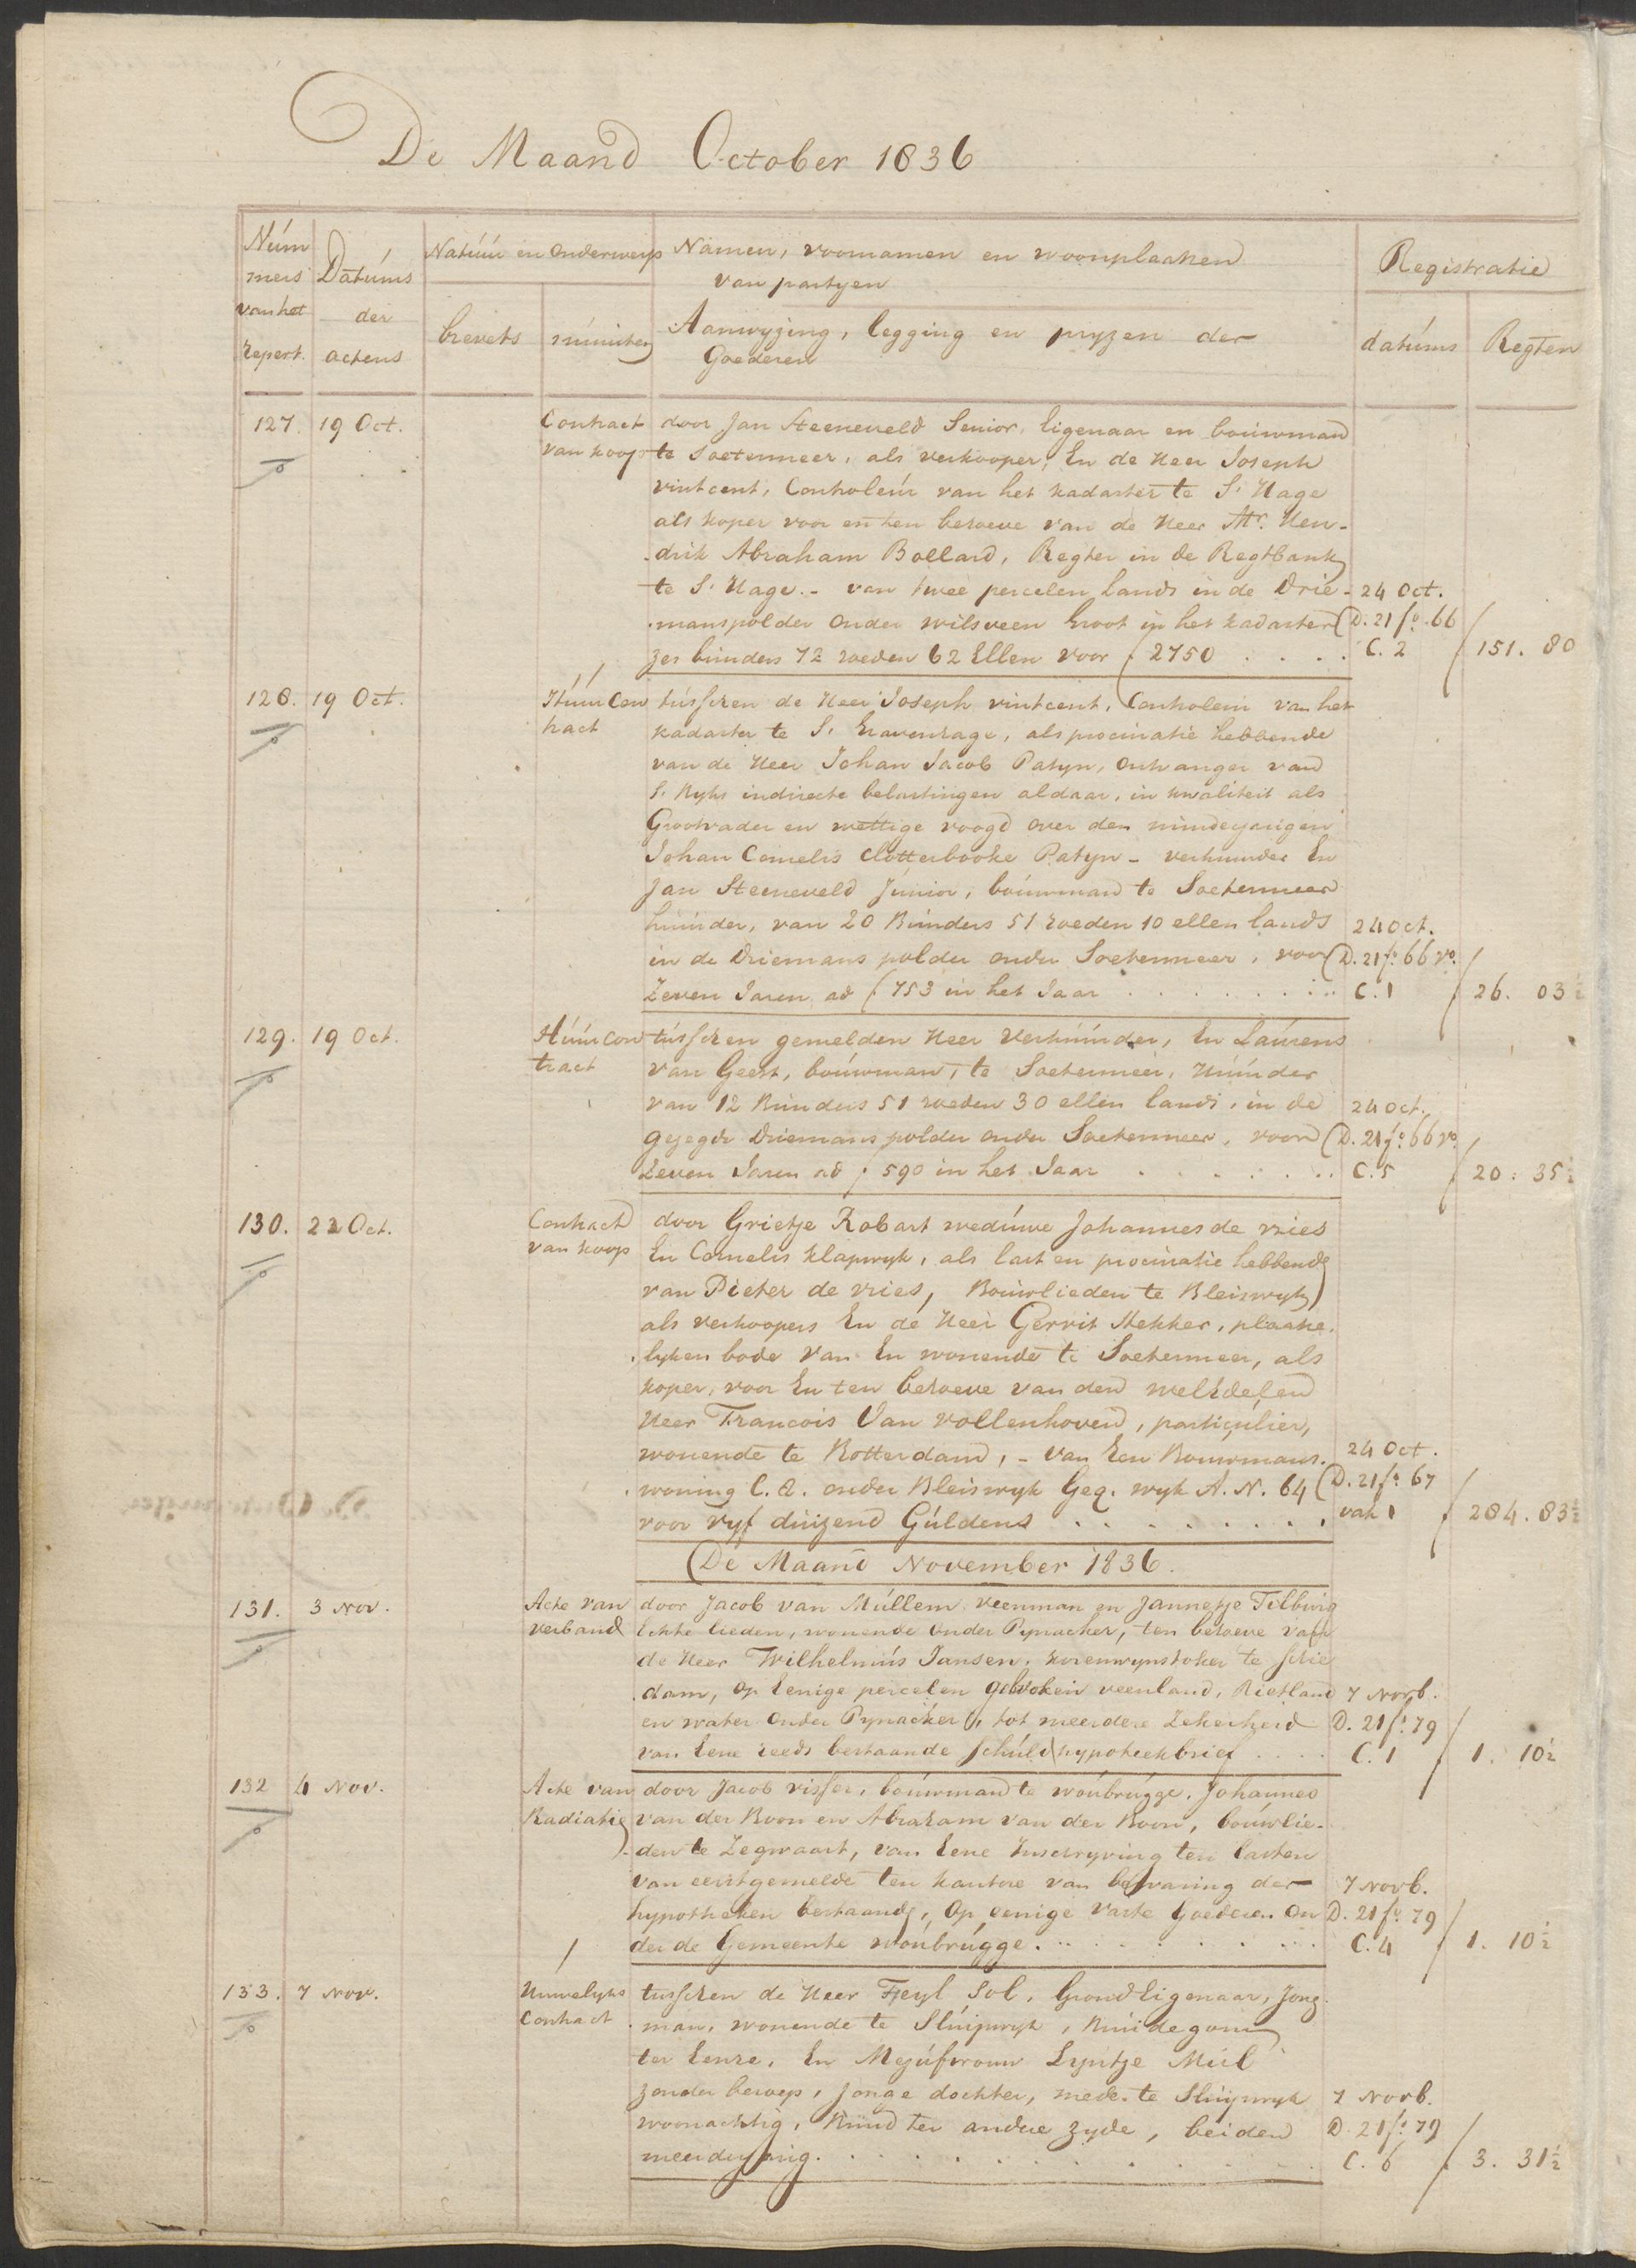 De Maand October 1836
Núm
mers
van het
repert.
Datúms
der
actens
Natúúr en Onderwerp
brevets
minúten
Namen, voornamen en woonplaatsen
van partyen
Aanwyzing, legging en pryzen der
Goederen
Registratie
datúms
Regten
127. 19 Oct. Contract door Jan Steeneveld Senior, Eigenaar en bouwman
van koop te Soetermeer, als verkooper, En de Heer Joseph
vintcent, Controleúr van het kadaster te S. Hage
als koper voor en ten behoeve van de Heer Mr. Hen-
drik Abraham Bollard, Regter in de Regtbank
te S. Hage. - van twee percelen lands in de Drie- 24 Oct.
manspolder onder wilsveen Groot in het kadaster D. 21 fo. 66
zes bunders 72 roeden 62 Ellen voor f 2750 . . . . C. 2 f 151. 80
128. 19 Oct. Húúr Con tússchen de Heer Joseph vintcent, Controleur van het
tract kadaster te S. Gravenhage, als procuratie hebbende
van de Heer Johan Jacob Patyn, Ontvanger van
S. Ryks indirecte belastingen aldaar, in kwaliteit als
Grootvader en wettige voogd over den minderjarigen
Johan Cornelis Clotterbooke Patyn - verhuurder En
Jan Steeneveld Júnior, bouwman te Soetermeer
huurder, van 20 Bunders 51 roeden 10 ellen lands 24 oct.
in de Driemans polder onder Soetermeer, voor D. 21 fo. 66 vo.
Zeven Jaren ad f 753 in het Jaar . . . . C. 1 f 26. 03½
129. 19 Oct. Húúr Con tússchen gemelden Heer Verhúúrder, En Laúrens
tract van Geest, boúwman, te Soetermeer, Húúrder
van 12 Bunders 51 roeden 30 ellen lands, in de 24 oct.
gezegde Driemans polder onder Soetermeer, voor D. 21 fo. 66 vo
Zeven Jaren ad f 590 in het Jaar . . . . C. 5 f 20. 35½
130. 22 Oct. Contract door Grietje Robart wedúwe Johannes de vries
van koop En Cornelis Klapwyk, als last en procuratie hebbende
van Pieter de vries, Bouwlieden te Bleiswyk
als verkoopers En de Heer Gerrit Stekker, plaatse-
lyken bode van En wonende te Soetermeer, als
koper, voor En ten behoeve van den welEdelen
Heer Francois Van vollenhoven, particulier,
wonende te Rotterdam, - van Een Bouwmans- 24 Oct.
woning C. A. onder Bleiswyk Geq. wyk A. N. 64 D. 21 fo. 67
voor vyf duizend Gúldens . . . . vak 1 f 284. 83½
De Maand November 1836.
131. 3 Nov. Acte van door Jacob van Múllem veenman en Jannetje Tilburg
verband Echte lieden, wonende onder Pynacker, ten behoeve van
de Heer Wilhelmús Jansen, korenwynstoker te Schie
dam, op Eenige percelen gebroken veenland, Rietland 7 Novb.
en water onder Pynacker, tot meerdere Zekerheid D. 21 fo. 79
van Eene reeds bestaande schúld hypotheekbrief . . . . C. 1 f 1. 10½
132 4 Nov. Acte van door Jacob visser, boúwman te woúbrúgge, Johannes
Radiatie van der Boon en Abraham van der Boon, boúwlie-
den te Zegwaart, van Eene Inschryving ten lasten
van eerstgemelde ten kantore van bewaring der 7 Novb.
hypotheken bestaande, Op eenige vaste Goederen on D. 21 fo. 79
der de Gemeente woubrúgge. . . . C. 4 f 1. 10½
133. 7 Nov. Huwelyks tusschen de Heer Feyl Sol, GrondEigenaar, Jong-
Contract man, wonende te Slúipwyk, Bruidegom
ter Eenre, En Mejúfvrouw Lyntje Múl
zonder beroep, Jonge dochter, mede te Sluipwyk 7 Novb.
woonachtig, Bruid ter andere zyde, beiden D. 21 fo. 79
meerderjarig. . . . C. 6 f 3. 31½